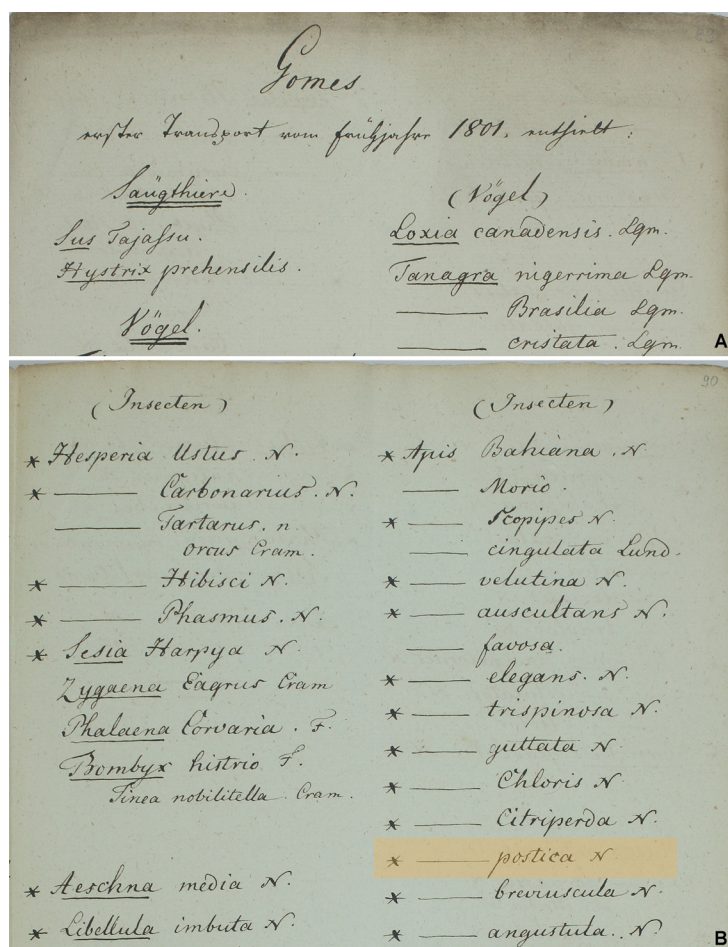 Gomes
erster Transport vom Frühjahre 1801. enthielt:
Säugthiere.
Sus Tajassu.
Hystrix prehensilis.
Vögel.
(Vögel)
Loxia canadensis. Lgm.
Tanagra nigerrima Lgm.
——— Brasilia Lgm.
——— cristata. Lgm.
A
90
(Insecten)
* Hesperia Ustus. N.
* ——— Carbonarius. N.
——— Tartarus. n
orcus Cram.
* ——— Hibisci N.
* ——— Phasmus. N.
* Sesia Harpya N.
Zygaena Eagrus Cram
Phalaena Corvaria. F.
Bombyx histrio F.
Tinea nobilitella. Cram.
* Aeschna media N.
* Libellula imbuta N.
(Insecten)
* Apis Bahiana. N.
——— Morio.
* ——— Scopipes N.
——— cingulata Lund.
* ——— velutina N.
* ——— auscultans N.
——— favosa.
* ——— elegans. N.
* ——— trispinosa N.
* ——— guttata N.
* ——— Chloris N.
* ——— Citriperda N.
* ——— postica N
* ——— breviuscula N.
* ——— angustula. N.
B